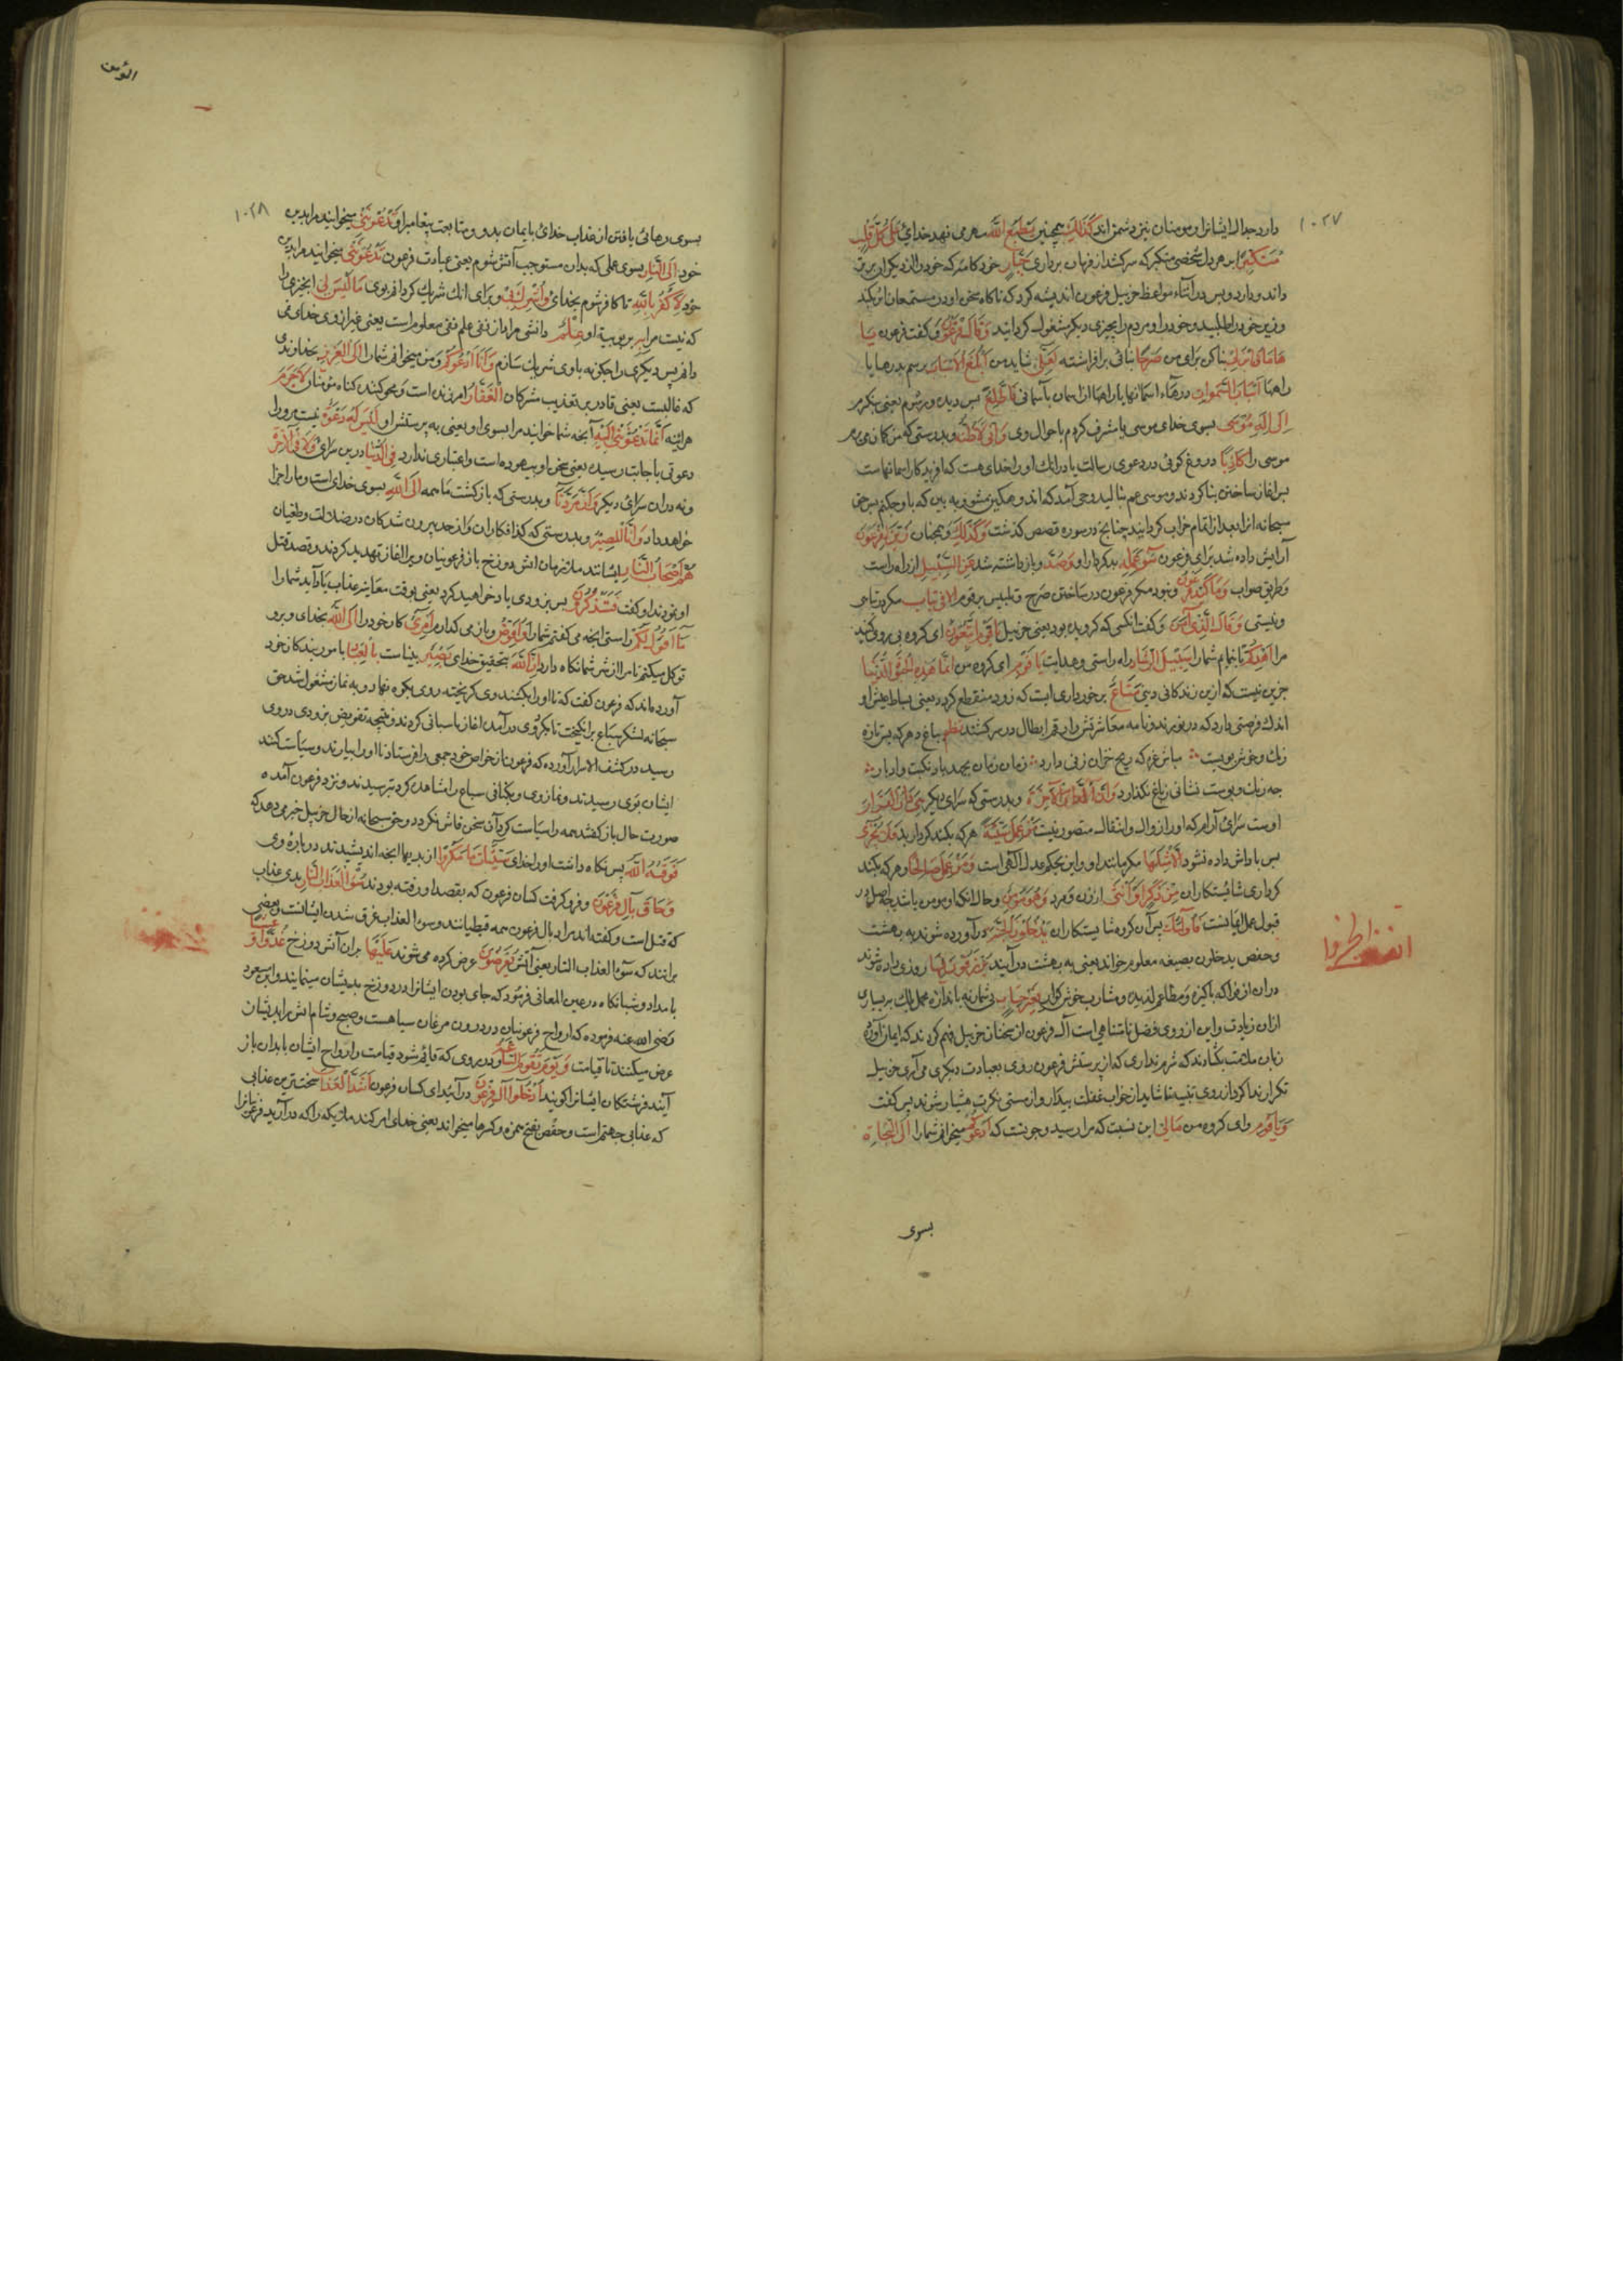 ١٠٢٧
دارد جدال ایشانرا و مومنان نیز دشمن اند كَذَلِكَ همچنین يَطْبَعُ اللَّه مهر می نهد خدای عَلَى كُلِّ قَلْبِ
مُتَكَبِّرٍ بر هر دل شخصی متکبر که سرکشد از فرمان برداری جَبَّارٍ خودکامه که خود را از دیگران برتر
داند و دارد و پس در اثناء مواعظ حزبیل فرعون اندیشه کرد که ناکاه سخن او در مستمعان اثر کند
وزیر خود را طلبید و خود را و مردم را بچیزی دیگر مشغول گردانید وَقَالَ فِرْعَوْنُ و گفت فرعون يَا
هَامَانُ ابْنِ لِي بنا کن برای من صَرْحًا بنائی برافراشته لَعَلِّي شاید من أَبْلُغُ الْأَسْبَابَ برسم بدرها یا
راهها أَسْبَابَ السَّمَوَاتِ درهاء آسمانها یا راهها از آسمان بآسمانی فَأَطَّلِعَ پس دیده ور شوم یعنی بنگرم
إِلَى إِلَهِ مُوسَى بسوی خدای موسی یا مشرف گردم باحوال وی وَإِنِّي لَأَظُنُّهُ و بدرستی که من گمان می برم
موسی را كَاذِبًا دروغ گوی در دعوی رسالت یا در آنک او را خدای هست که آفریدگار آسمانهاست
پس آغاز ساختن بنا کردند و موسی عم بنالید وحی آمد که اندوهگین مشو و به بین که با او چکنم پس حق
سبحانه آنرا بعد از اتمام خراب گردانید چنانچه در سوره قصص گذشت وَكَذَلِكَ و همچنان زُيِّنَ لِفِرْعَوْنَ
آرایش داده شد برای فرعون سُوءُ عَمَلِهِ بد کردار او وَصُدَّ و باز داشته شد عَنِ السَّبِيلِ از راه راست
و طریق صواب وَمَا كَيْدُ فِرْعَوْنَ و نبود مکر فرعون در ساختن صرح و تلبیس بر قوم إِلَّا فِي تَبَابٍ مگر در تباهی
و نیستی وَقَالَ الَّذِي آمَنَ و گفت آنکسی که گرویده بود یعنی حزبیل يَا قَوْمِ اتَّبِعُونِ ای گروه پی روی کنید
مرا أَهْدِكُمْ تا بنمایم شما را سَبِيلَ الرَّشَادِ راه راستی و هدایت يَا قَوْمِ ای گروه من إِنَّمَا هَذِهِ الْحَيَوةُ الدُّنْيَا
جزین نیست که ازین زندگانی دنیی مَتَاعٌ برخورداری است که زود منقطع گردد یعنی بساط عیش او
اندک فرصتی دارد که در نوردند و نامه معاشرتش را رقم ابطال در سر کشند نظم بباغ دهر که بس تازه
رنگ و خوش بویست ؞ مباش غره که ریح خزان زپی دارد ؞ زمان زمان بجمد باد نکبت و ادبار ؞
چه رنگ و بوست نشانی زباغ نگذارد وَإِنَّ الْآخِرَةَ و بدرستی که سرای دیگر هِيَ دَارُ الْقَرَارِ
اوست سرای آرام که او را زوال و انتقال متصور نیست مَنْ عَمِلَ سَيِّئَةً هر که بکند کردار بد فَلَا يُجْزَى
پس پاداش داده نشود إِلَّا مِثْلَهَا مگر مانند او و این بحکم عدل الهی است وَمَنْ عَمِلَ صَالِحًا و هر که بکند
کرداری شایسته کاران مِنْ ذَكَرٍ أَوْ أُنْثَى از زن و مرد وَهُوَ مُؤْمِنٌ و حال آنکه او مومن باشد چه اصل در
قبول عمل ایمانست فَأُولَئِكَ پس آن گروه شایستکاران يَدْخُلُونَ الْجَنَّةَ درآورده شوند به بهشت
و حفص یدخلون بصیغه معلوم خواند یعنی به بهشت درآیند يُرْزَقُونَ فِيهَا روزی داده شوند
دران از فواکه پاکیزه و مطاعم لذیذه و مشارب خوش گوار بِغَيْرِ حِسَابٍ بی شمار نه باندازه عمل بلک بر بسیاری
ازان زیادت و این از روی فضل نامتناهی است آل فرعون از سخنان حزبیل فهم کردند که ایمان آورده
زبان ملامت بگشادند که شرم نداری که از پرستش فرعون روی بعبادت دیگری می آری حزبیل
تکرار ندا کرد از روی تنبیه تا شاید از خواب غفلت بیدار و از مستی نکرت هشیار شوند پس گفت
وَيَا قَوْمِ و ای گروه من مَا لِي این نسبت که مرا رسید و چونست که أَدْعُوكُمْ میخوانم شما را إِلَى النَّجَاةِ
بسوی
١٠٢٨
بسوی رهائی یافتن از عذاب خدای بایمان بدو و متابعت پیغامبر او وَتَدْعُونَنِي میخوانید مرا بدین
خود إِلَى النَّارِ بسوی عملی که بدان مستوجب آتش شوم یعنی عبادت فرعون تَدْعُونَنِي میخوانید مرا بدین
خود لِأَكْفُرَ بِاللَّهِ تا کافر شوم بخدای وَأُشْرِكَ بِهِ و برای آنک شرک گردانم بوی مَا لَيْسَ لِي آنچیزی را
که نیست مرا بِهِ بر بوبیة او عِلْمٌ دانشی مراد از نفی علم نفی معلوم است یعنی غیر از وی خدای نمی
دانم پس دیگری را چگونه با وی شریک سازم وَأَنَا أَدْعُوكُمْ و من میخوانم شما را إِلَى الْعَزِيزِ بخداوندی
که غالبست یعنی قادر بر تعذیب مشرکان الْغَفَّارِ آمرزنده است و محو کننده گناه مومنان لَا جَرَمَ
هرآینه أَنَّمَا تَدْعُونَنِي إِلَيْهِ آنچه شما خوانید مرا بسوی او یعنی به پرستش او لَيْسَ لَهُ دَعْوَةٌ نیست مرو را
دعوتی باجابت رسیده یعنی سخن او بیهوده است و اعتباری ندارد فِي الدُّنْيَا درین سرای وَلَا فِي الْآخِرَةِ
و نه دران سرای دیگر وَأَنَّ مَرَدَّنَا و بدرستی که بازگشت ما همه إِلَى اللَّهِ بسوی خدای است و ما را جزا
خواهد داد وَأَنَّ الْمُسْرِفِينَ و بدرستی که گزافکاران و از حد بیرون شدگان در ضلالت و طغیان
هُمْ أَصْحَابُ النَّارِ ایشانند ملازمان آتش دوزخ باز فرعونیان ویرا آغاز تهدید کردند و قصد قتل
او نمودند او گفت فَسَتَذْكُرُونَ پس بزودی یاد خواهید کرد یعنی بوقت معاینه عذاب یاد آید شما را
مَا أَقُولُ لَكُمْ راستی آنچه می گفتم شما را وَأُفَوِّضُ و باز می گذارم أَمْرِي کار خود را إِلَى اللَّهِ بخدای و برو
توکل میکنم تا مرا از شر شما نگاه دارد إِنَّ اللَّهَ بتحقیق خدای بَصِيرٌ بیناست بِالْعِبَادِ بامور بندگان خود
آورده اند که فرعون گفت که تا او را بکشند وی گریخته روی بکوه نهاد و به نماز مشغول شد حق
سبحانه لشکر سباع برانگیخت تا بگرد وی درآمده آغاز پاسبانی کردند و نتیجه تفویض بزودی در وی
رسید در کشف الاسرار آورده که فرعون از خواص خود جمعی را فرستاد تا او را بیارند و سیاست کنند
ایشان بوی رسیدند و نماز وی و نگهبانی سباع را مشاهده کرده بترسیدند و نزد فرعون آمده
صورت حال باز گفتند همه را سیاست کرد تا آن سخن فاش نگردد و حق سبحانه از حال حزبیل خبر می دهد که
فَوَقَيهُ اللَّهُ پس نگاه داشت او را خدای سَيِّئَاتِ مَا مَكَرُوا از بدیها آنچه اندیشیدند درباره وی
وَحَاقَ بِآلِ فِرْعَوْنَ و فرو گرفت کسان فرعون که بقصد او رفته بودند سُوءُ الْعَذَابِ بدی عذاب
که قتل است و گفته اند مراد بآل فرعون همه قبطیانند و سوء العذاب غرق شدن ایشانست و بعضی
برانند که سوء العذاب النار یعنی آتش يُعْرَضُونَ عرض کرده می شوند عَلَيْهَا بران آتش دوزخ غُدُوًّا وَعَشِيًّا
بامداد و شبانگاه در عین المعانی فرمود که جای بودن ایشانرا در دوزخ بدیشان مینمایند و ابن مسعود
رضی الله عنه فرموده که ارواح فرعونیان در درون مرغان سیاهست و صبح و شام آتش را بدیشان
عرض میکنند تا قیامت وَيَوْمَ تَقُومُ السَّاعَةُ و در روزی که قایم شود قیامت و ارواح ایشان بابدان باز
آیند فرشتگان ایشانرا گویند أَدْخِلُوا آلَ فِرْعَوْنَ درآئید ای کسان فرعون أَشَدَّ الْعَذَابِ سخت ترین عذابی
که عذاب جهنم است و حفص بفتح همزه و کسر خا میخواند یعنی خدای امر کند ملائیکه را که درآرید فرعونیانرا